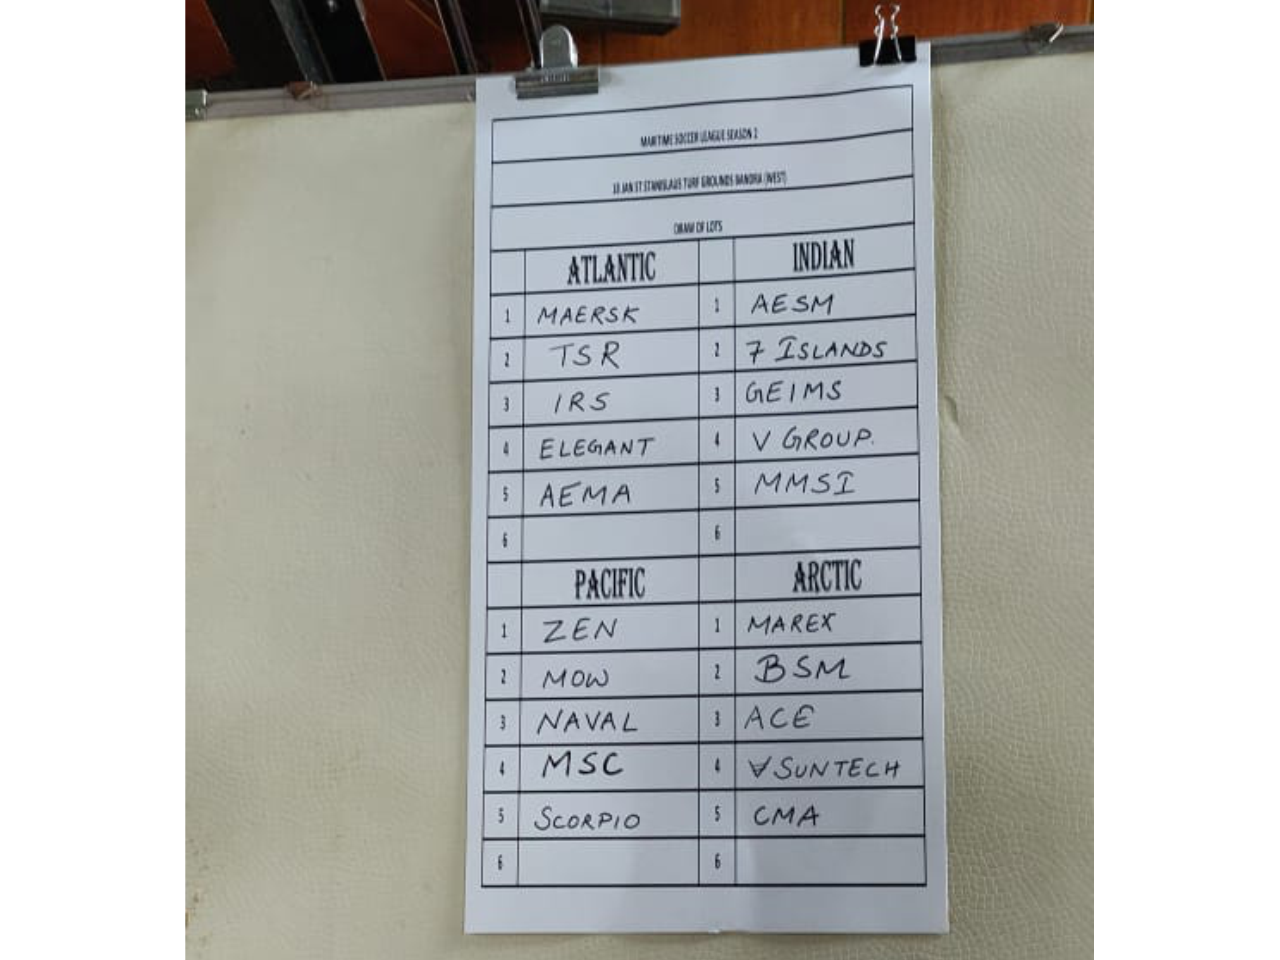 MARITIME SOCCER LEAGUE SEASON 2
18 JAN ST STANISLAUS TURF GROUNDS BANDRA (WEST)
DRAW OF LOTS
ATLANTIC INDIAN
1 MAERSK 1 AESM
2 TSR 2 7 ISLANDS
3 IRS 3 GEIMS
4 ELEGANT 4 V GROUP.
5 AEMA 5 MMSI
6 6
PACIFIC ARCTIC
1 ZEN 1 MAREX
2 MOW 2 BSM
3 NAVAL 3 ACE
4 MSC 4 SUNTECH
5 SCORPIO 5 CMA
6 6